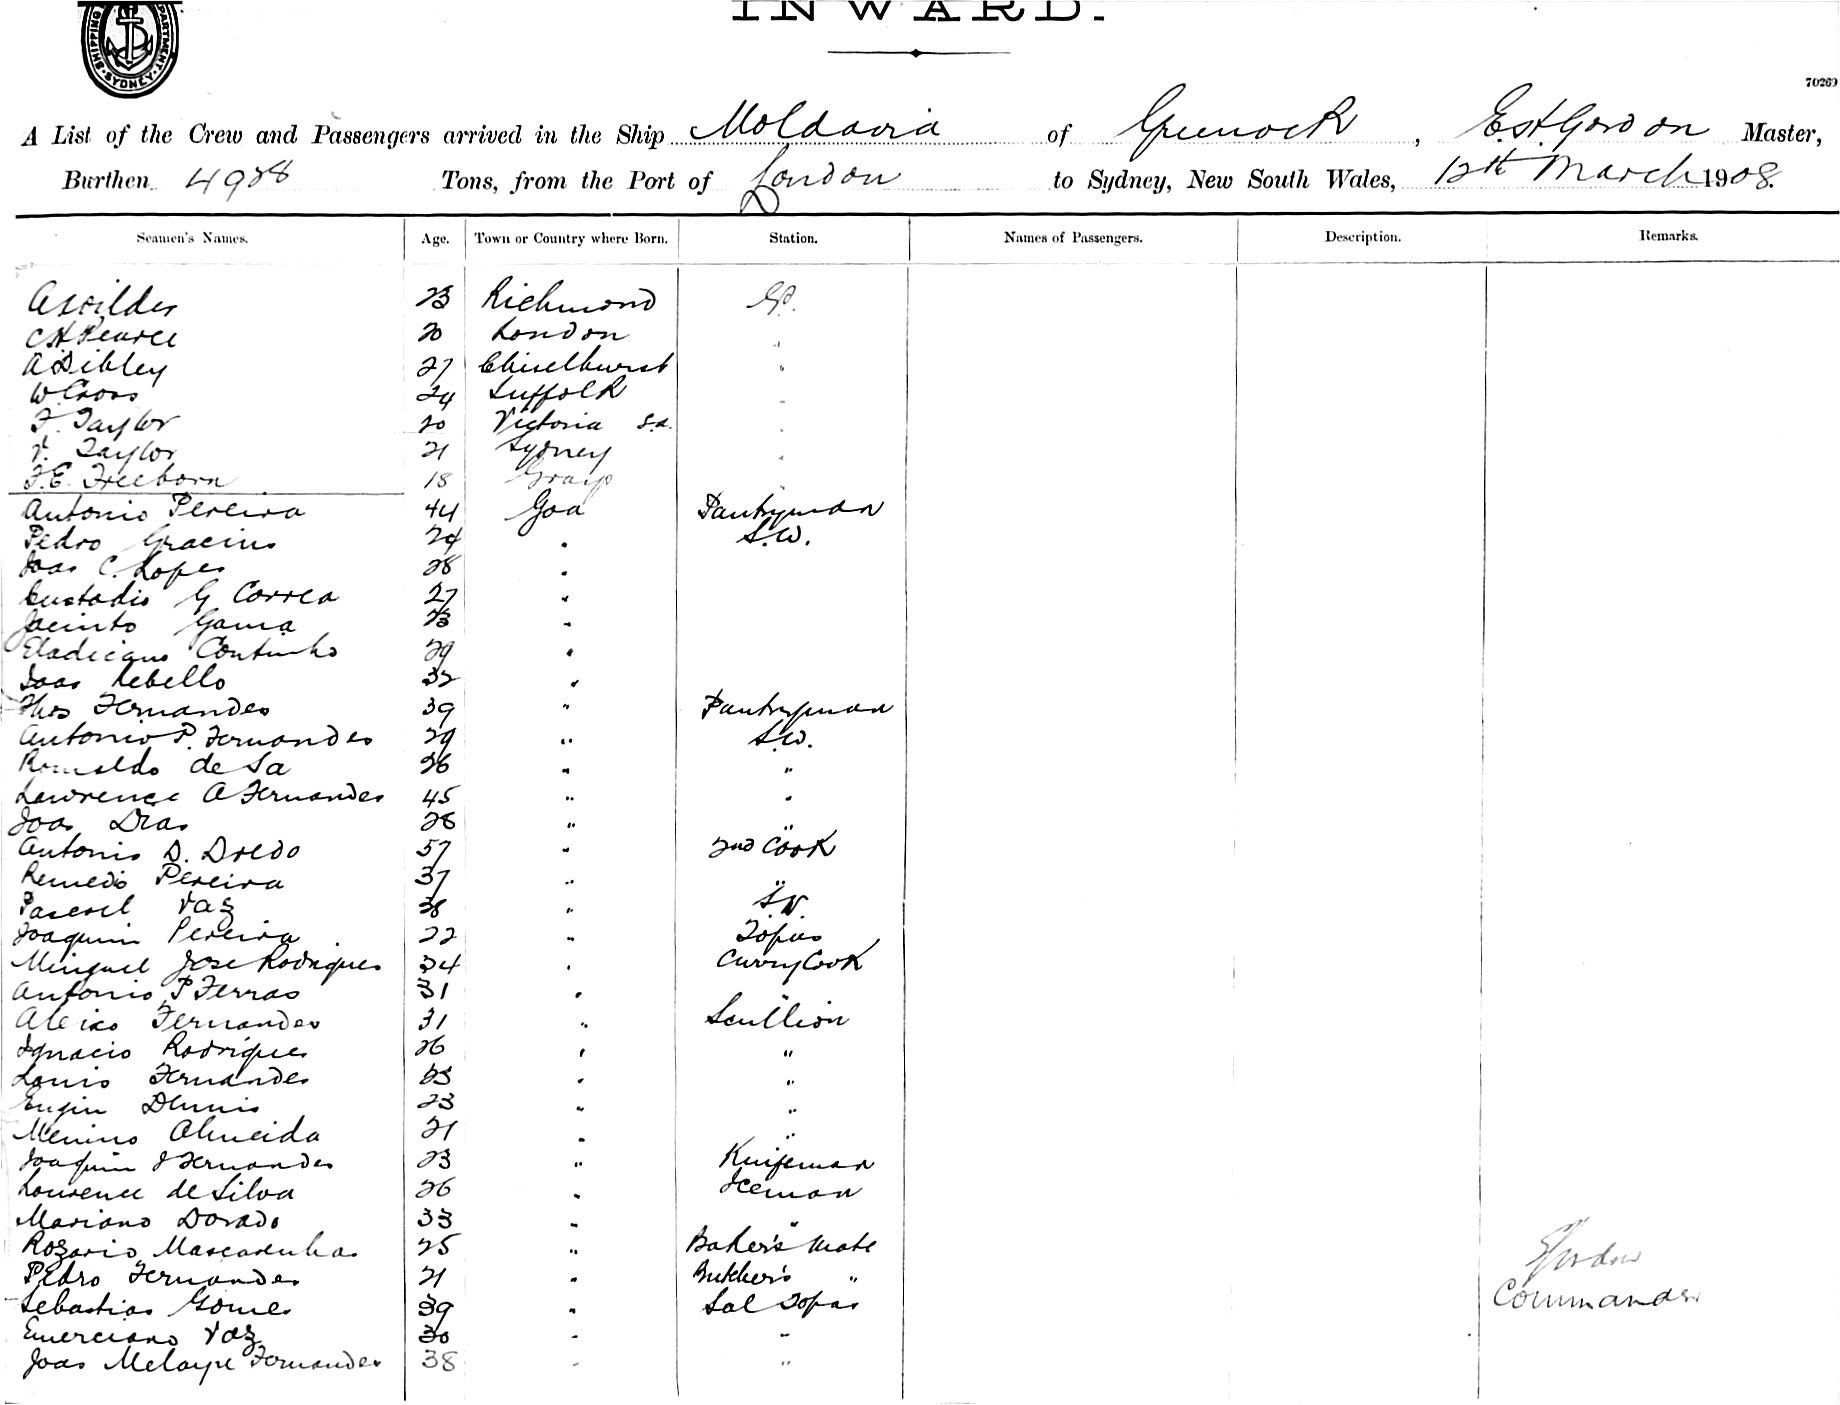 INWARD.
SHIPPING DEPARTMENT. SYDNEY.
70269
A List of the Crew and Passengers arrived in the Ship Moldavia of Greenock, E.H. Gordon Master,
Burthen 4928 Tons, from the Port of London to Sydney, New South Wales, 12th March 1908.
Seamen's Names. Age. Town or Country where Born. Station. Names of Passengers. Description. Remarks.
A Wilder 23 Richmond
CH Pearce 20 London "
A Sibley 27 Chiselhurst "
W. Cross 24 Suffolk "
F. Taylor 20 Victoria S.a. "
V. Taylor 21 Sydney "
F.E. Freeborn 18 "
Antonio Pereira 44 Goa Pantryman
Pedro Gracius 24 " S.W.
Joas C. Lopes 28 "
Custodio G Correa 27 "
Jacinto Gama 23 "
Eladicano Continho 29 "
Joas Rebello 32 "
Thos Fernandes 39 " Pantryman
Antonio P. Fernandes 29 " S.W.
Romaldo de Sa 26 " "
Lawrence A Fernandes 45 " "
Joas Dias 28 " "
Antonio D. Dredo 57 " 2nd Cook
Remedio Pereira 37 " "
Pascoal Vaz 38 " S.W.
Joaquim Pereira 22 " Topas
Minguel Jose Rodrigues 34 " Curry Cook
Antonio P Ferras 31 " "
Aleixo Fernandes 31 " Scullion
Ignacio Rodrigues 26 " "
Louis Fernandes 23 " "
Eugin Dennis 23 " "
Menino Almeida 21 " "
Joaquim J Fernandes 23 " Knifeman
Lourence de Silva 26 " Iceman
Mariano Dorado 33 " "
Rozario Mascarenhas 25 " Baker's Mate
Pedro Fernandes 21 " Butcher's "
Sebastias Gomes 39 " Sal Topas
Emerciano Vaz 30 " "
Joas Melaype Fernandes 38 " "
Gordon
Commander